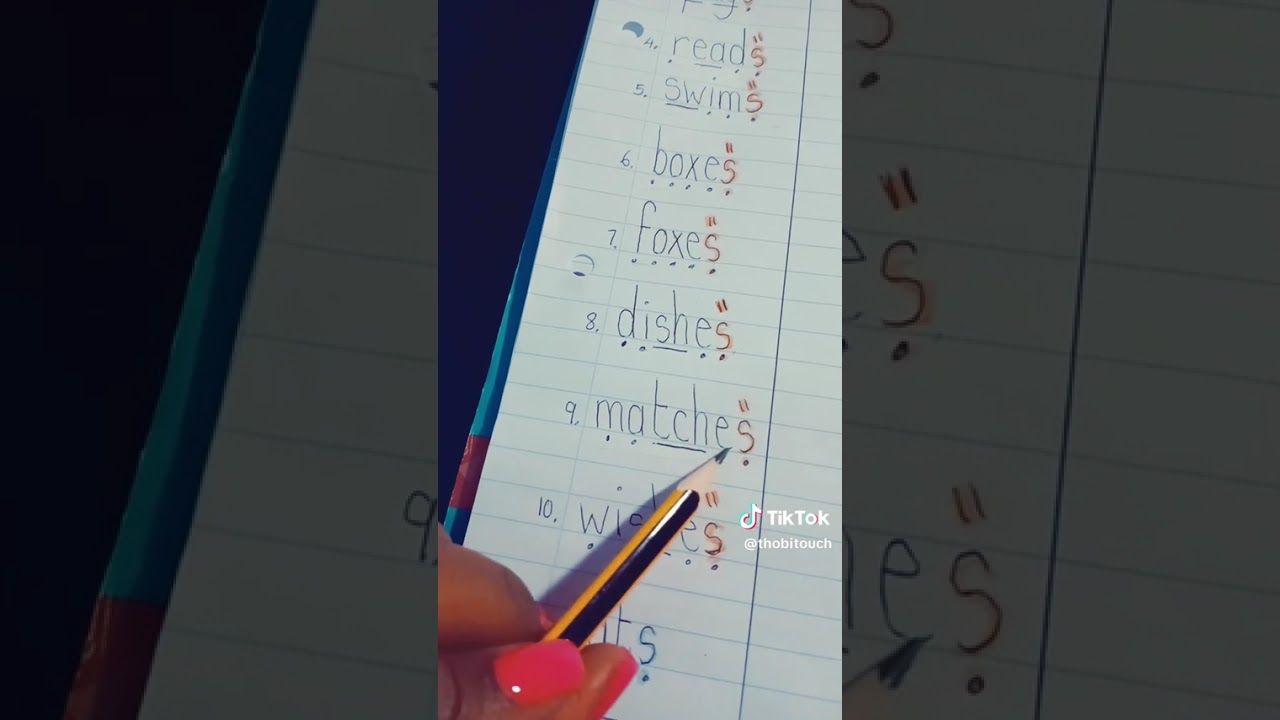 4. reads
5. swims
6. boxes
7. foxes
8. dishes
9. matches
10.
TikTok
@thobitouch